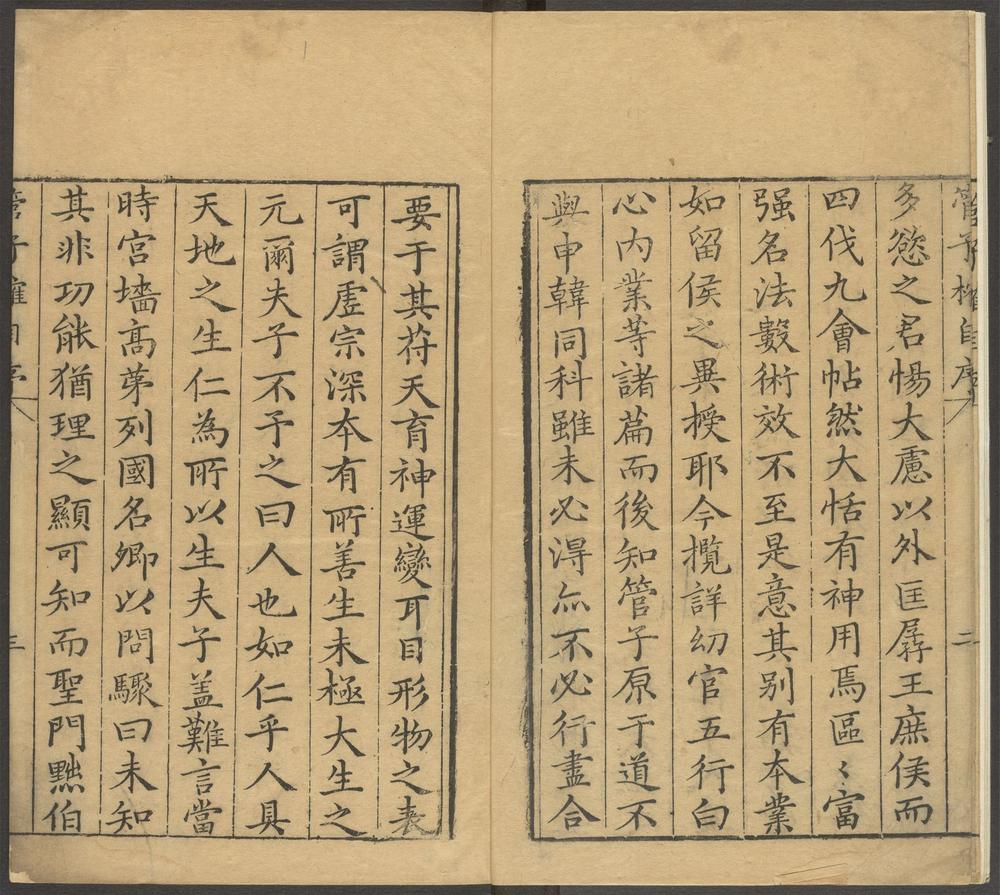 管子榷自序 二
多慾之君惕大慮以外匡孱王庶侯而
四伐九會帖然大恬有神用焉區〻富
强名法數術效不至是意其别有本業
如留侯之異授耶今攬詳幼官五行白
心内業等諸篇而後知管子原于道不
與申韓同科雖未必得亦不必行盡合
要于其符天育神運變耳目形物之表
可謂虛宗深本有所善生未極大生之
元爾夫子不予之曰人也如仁乎人具
天地之生仁為所以生夫子盖難言當
時宮墻高苐列國名卿以問驟曰未知
其非功能猶理之顯可知而聖門黜伯
管子榷自序 三